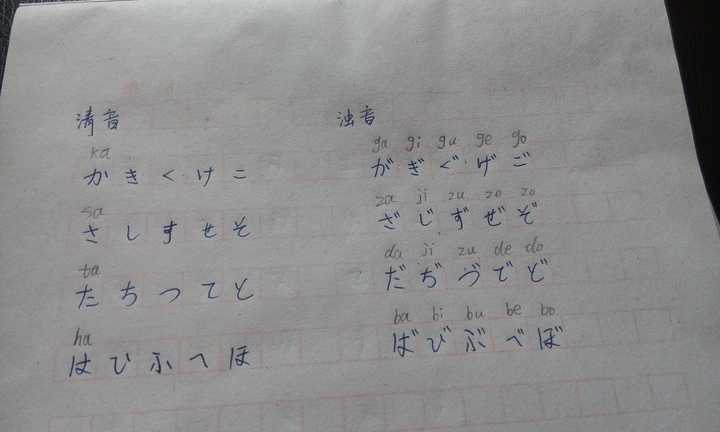 清音 浊音
ka ga gi gu ge go
かきくけこ がぎぐげご
sa za ji zu zo zo
さしすせそ ざじずぜぞ
ta da ji zu de do
たちつてと だぢづでど
ha ba bi bu be bo
はひふへほ ばびぶべぼ